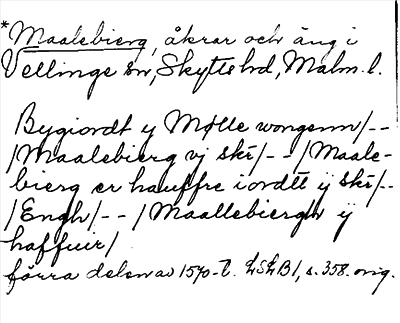 *Maalebierg, åkrar och äng i
Vellinge sn, Skytts hd, Malm. l.
Bygiordt y Mølle wongenn/--
/Maalebierg vj skr/--/Maale-
bierg er hauffre iordtt ij skr/--
/Engh/--/Maallebiergh ij
haffuir/
förra delen av 1570-t. LSLB1, s. 358. orig.